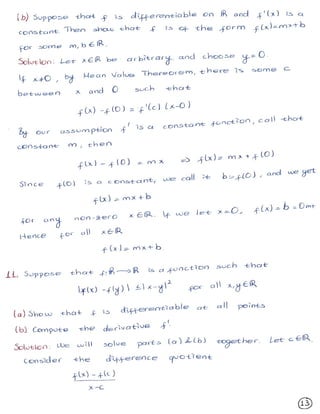 (b) Suppose that f is differentiable on R and f'(x) is a
constant. Then show that f is of the form f(x)=mx+b
for some m, b ∈ R.
Solution: Let x∈R be arbitrary and choose y=0.
If x≠0, by Mean Value Therorem, there is some c
between x and 0 such that
f(x) - f(0) = f'(c) (x-0)
By our assumption f' is a constant function, call that
constant m, then
f(x) - f(0) = mx ⇒ f(x) = mx + f(0)
Since f(0) is a constant, we call it b=f(0), and we get
f(x) = mx+b
for any non-zero x∈R. If we let x=0, f(x)=b=0m+b
Hence for all x∈R
f(x) = mx+b.
11. Suppose that f:R→R is a function such that
|f(x) - f(y)| ≤ |x-y|² for all x,y∈R
(a) Show that f is differentiable at all points
(b) Compute the derivative f'.
Solution: We will solve parts (a) & (b) together. Let c∈R.
Consider the difference quotient
f(x) - f(c)
x-c
13